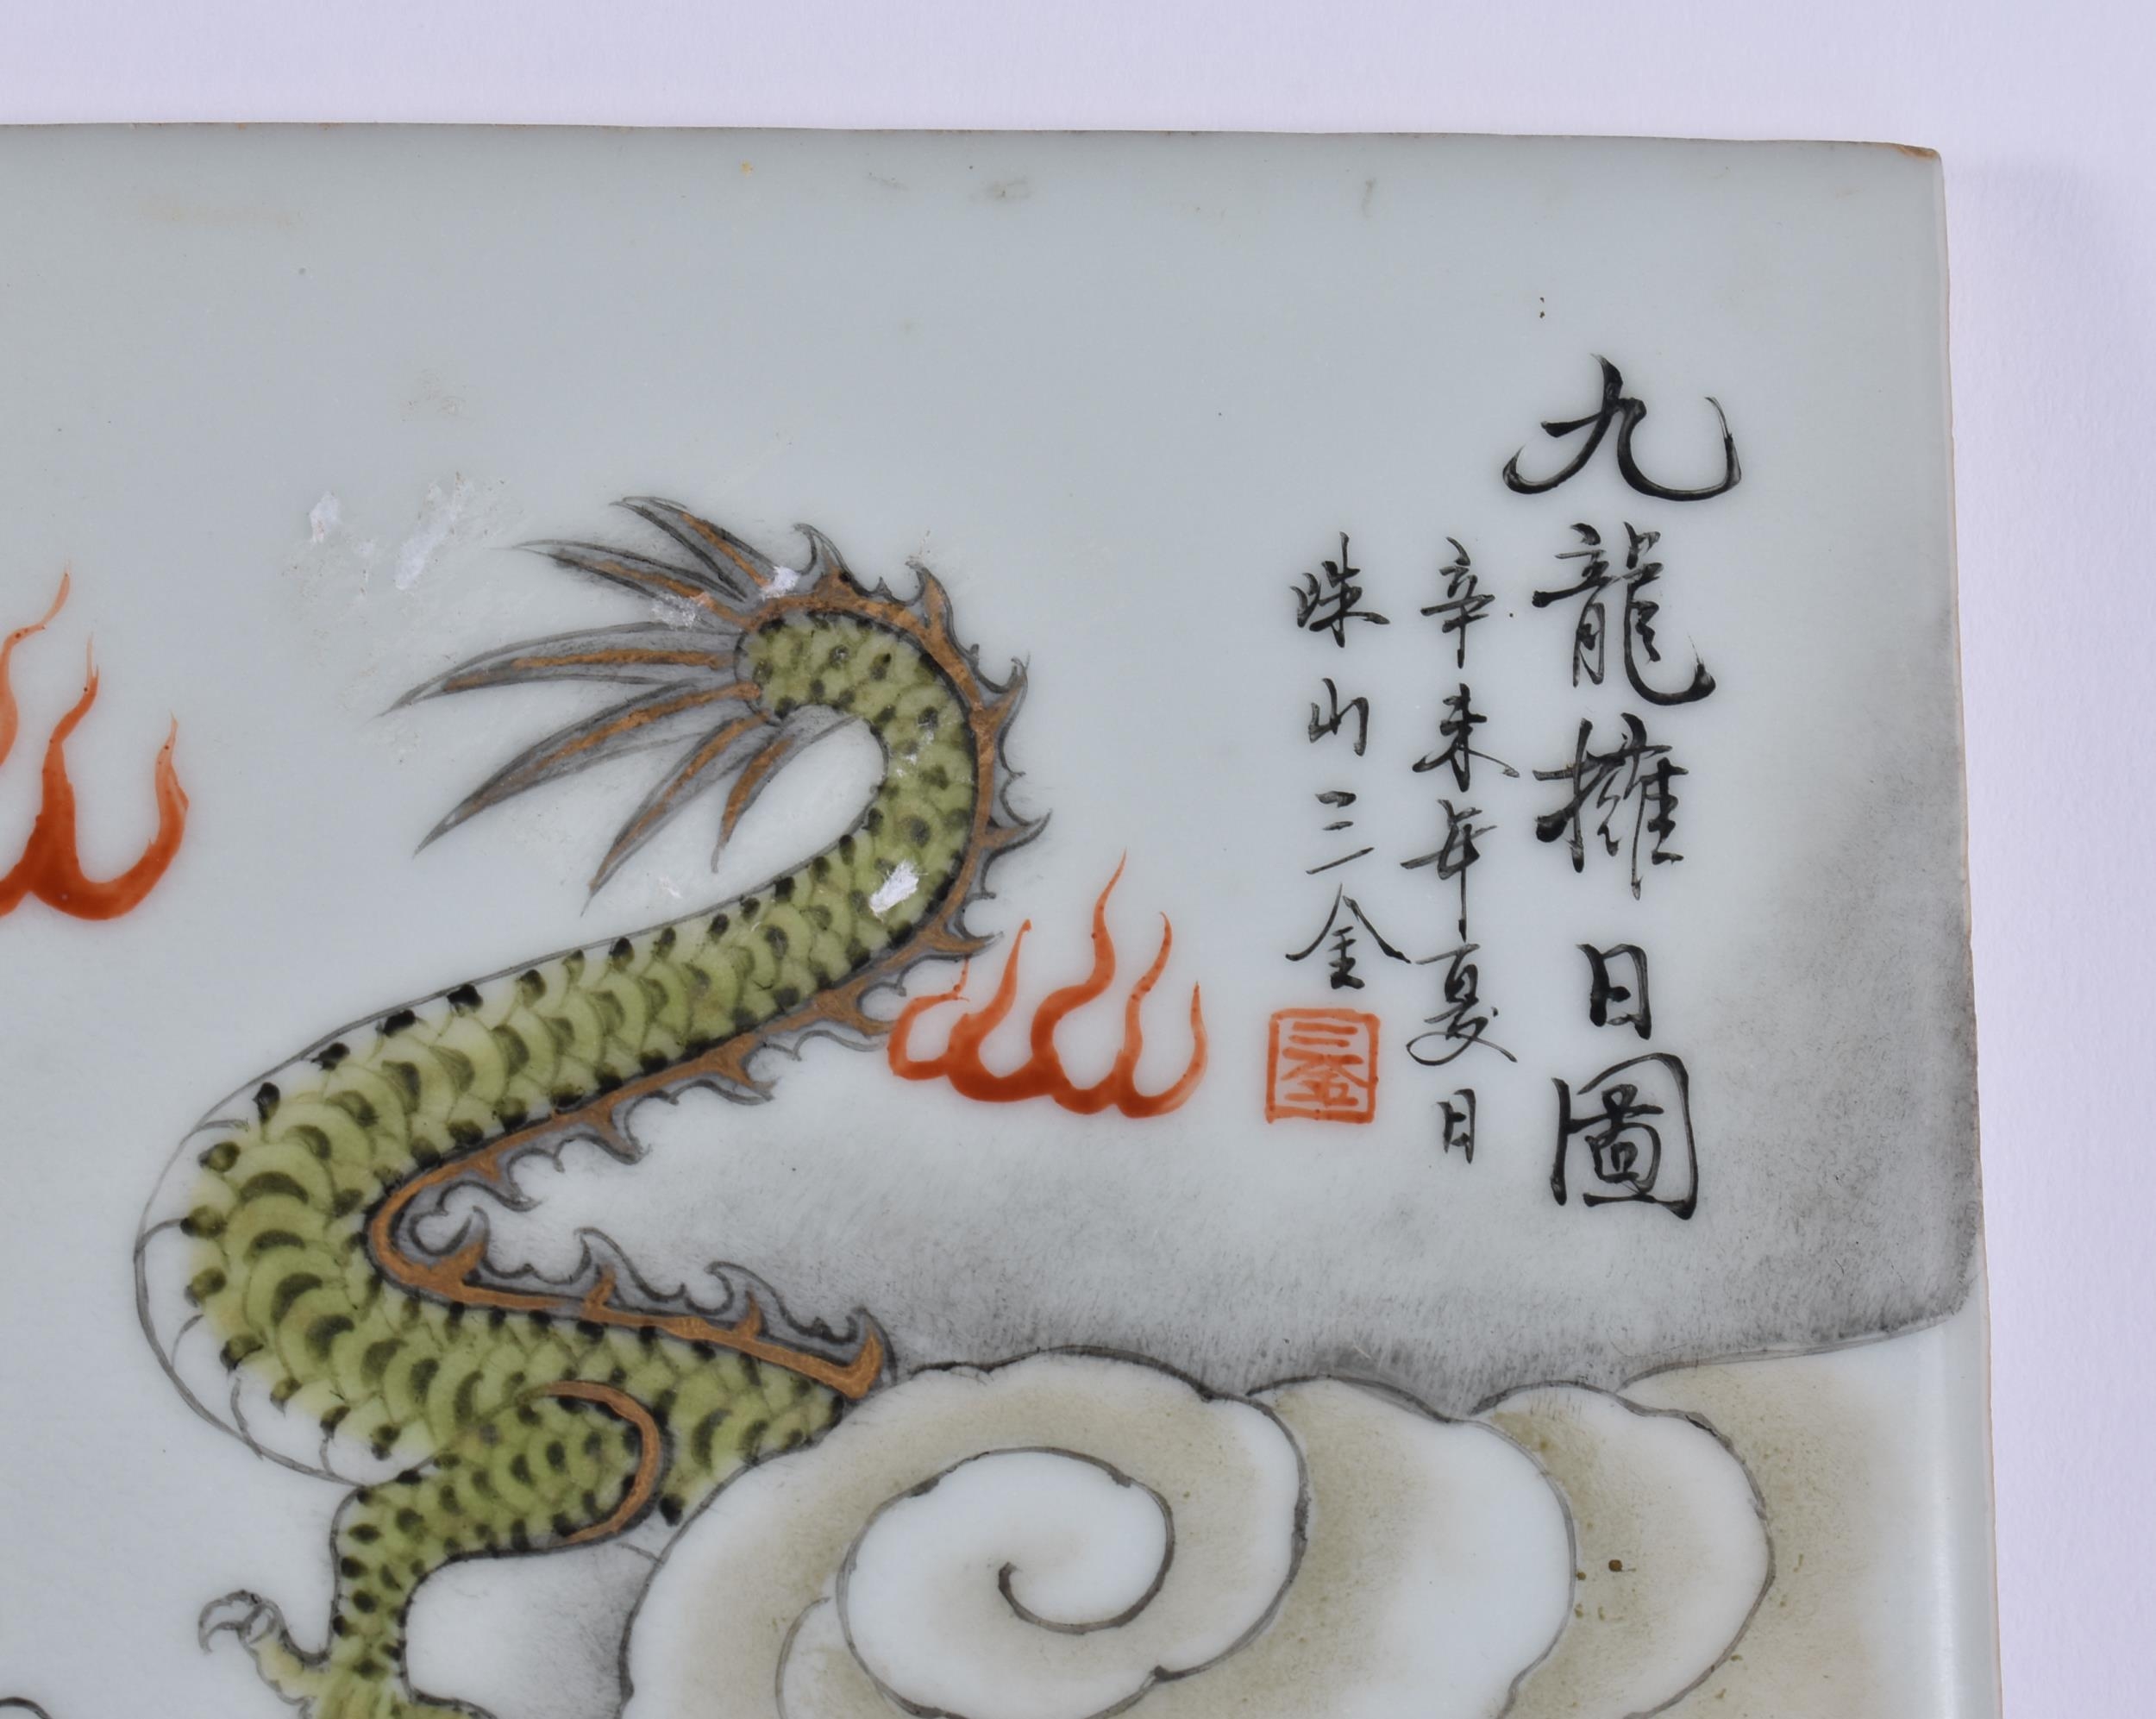 九龍擁日圖
辛未年夏日
珠山三金
三金